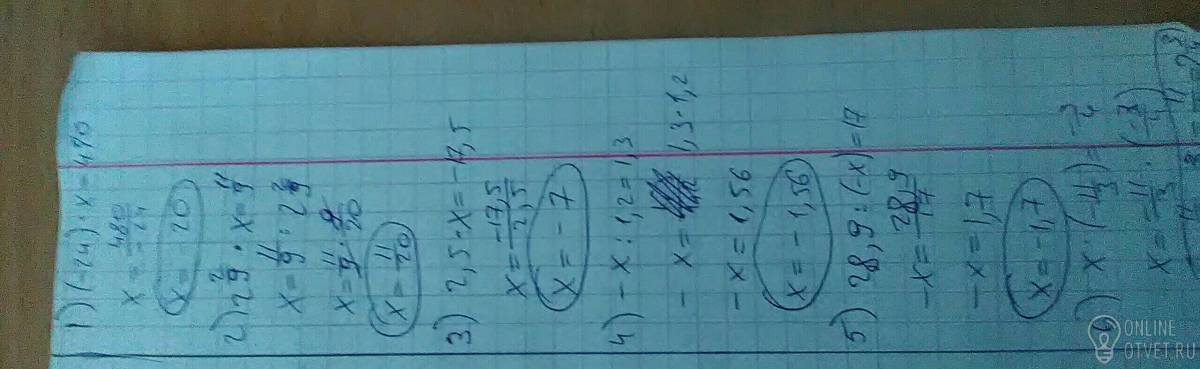 1) (-24) · x = 480
x = 480/-24
x = -20
2) 2 2/9 · x = 11/9
x = 11/9 : 2 2/9
x = 11/9 · 9/20
x = 11/20
3) 2,5 · x = -17,5
x = -17,5/2,5
x = -7
4) -x : 1,2 = 1,3
-x = 1,3 · 1,2
-x = 1,56
x = -1,56
5) 28,9 : (-x) = 17
-x = 28,9/17
-x = 1,7
x = -1,7
ONLINE
OTVET.RU